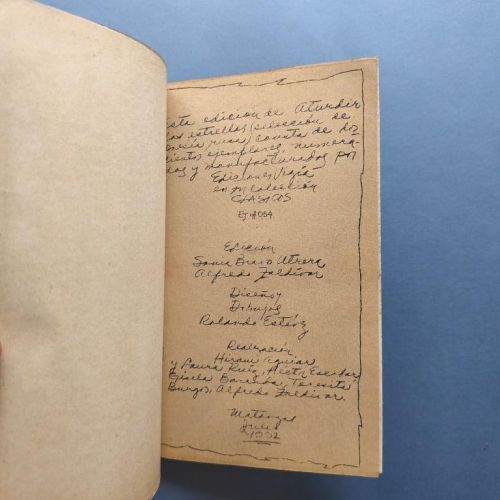 Esta edición de Aturdir
las estrellas (selección de
poesía rusa) consta de dos
cientos ejemplares, numera-
dos y manufacturados por
Ediciones Vigía
en su colección
CLASICOS
Ej # 054
Edición
Sonia Bravo Utrera
Alfredo Zaldívar
Diseño y
Dibujos
Rolando Estévez
Realización
Hiram Aguiar
y Laura Ruiz, Escobar,
Gisela Baranda, Teresita
Burgos, Alfredo Zaldívar.
Matanzas
Julio
1992